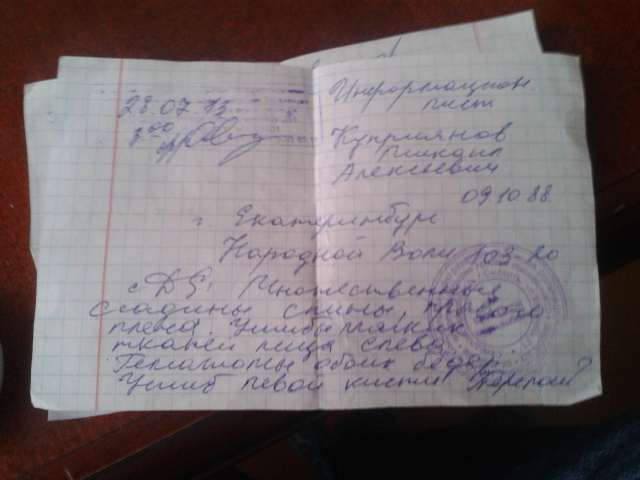 28.07.13
Информацион.
лист
Куприянов
Михаил
Алексеевич
09.10.88
г. Екатеринбург
Народной Воли 103-20
с DS: Множественные
ссадины спины, правого
плеча. Ушибы мягких
тканей лица слева.
Гематомы обоих бедер.
Ушиб левой кисти. Перелом?